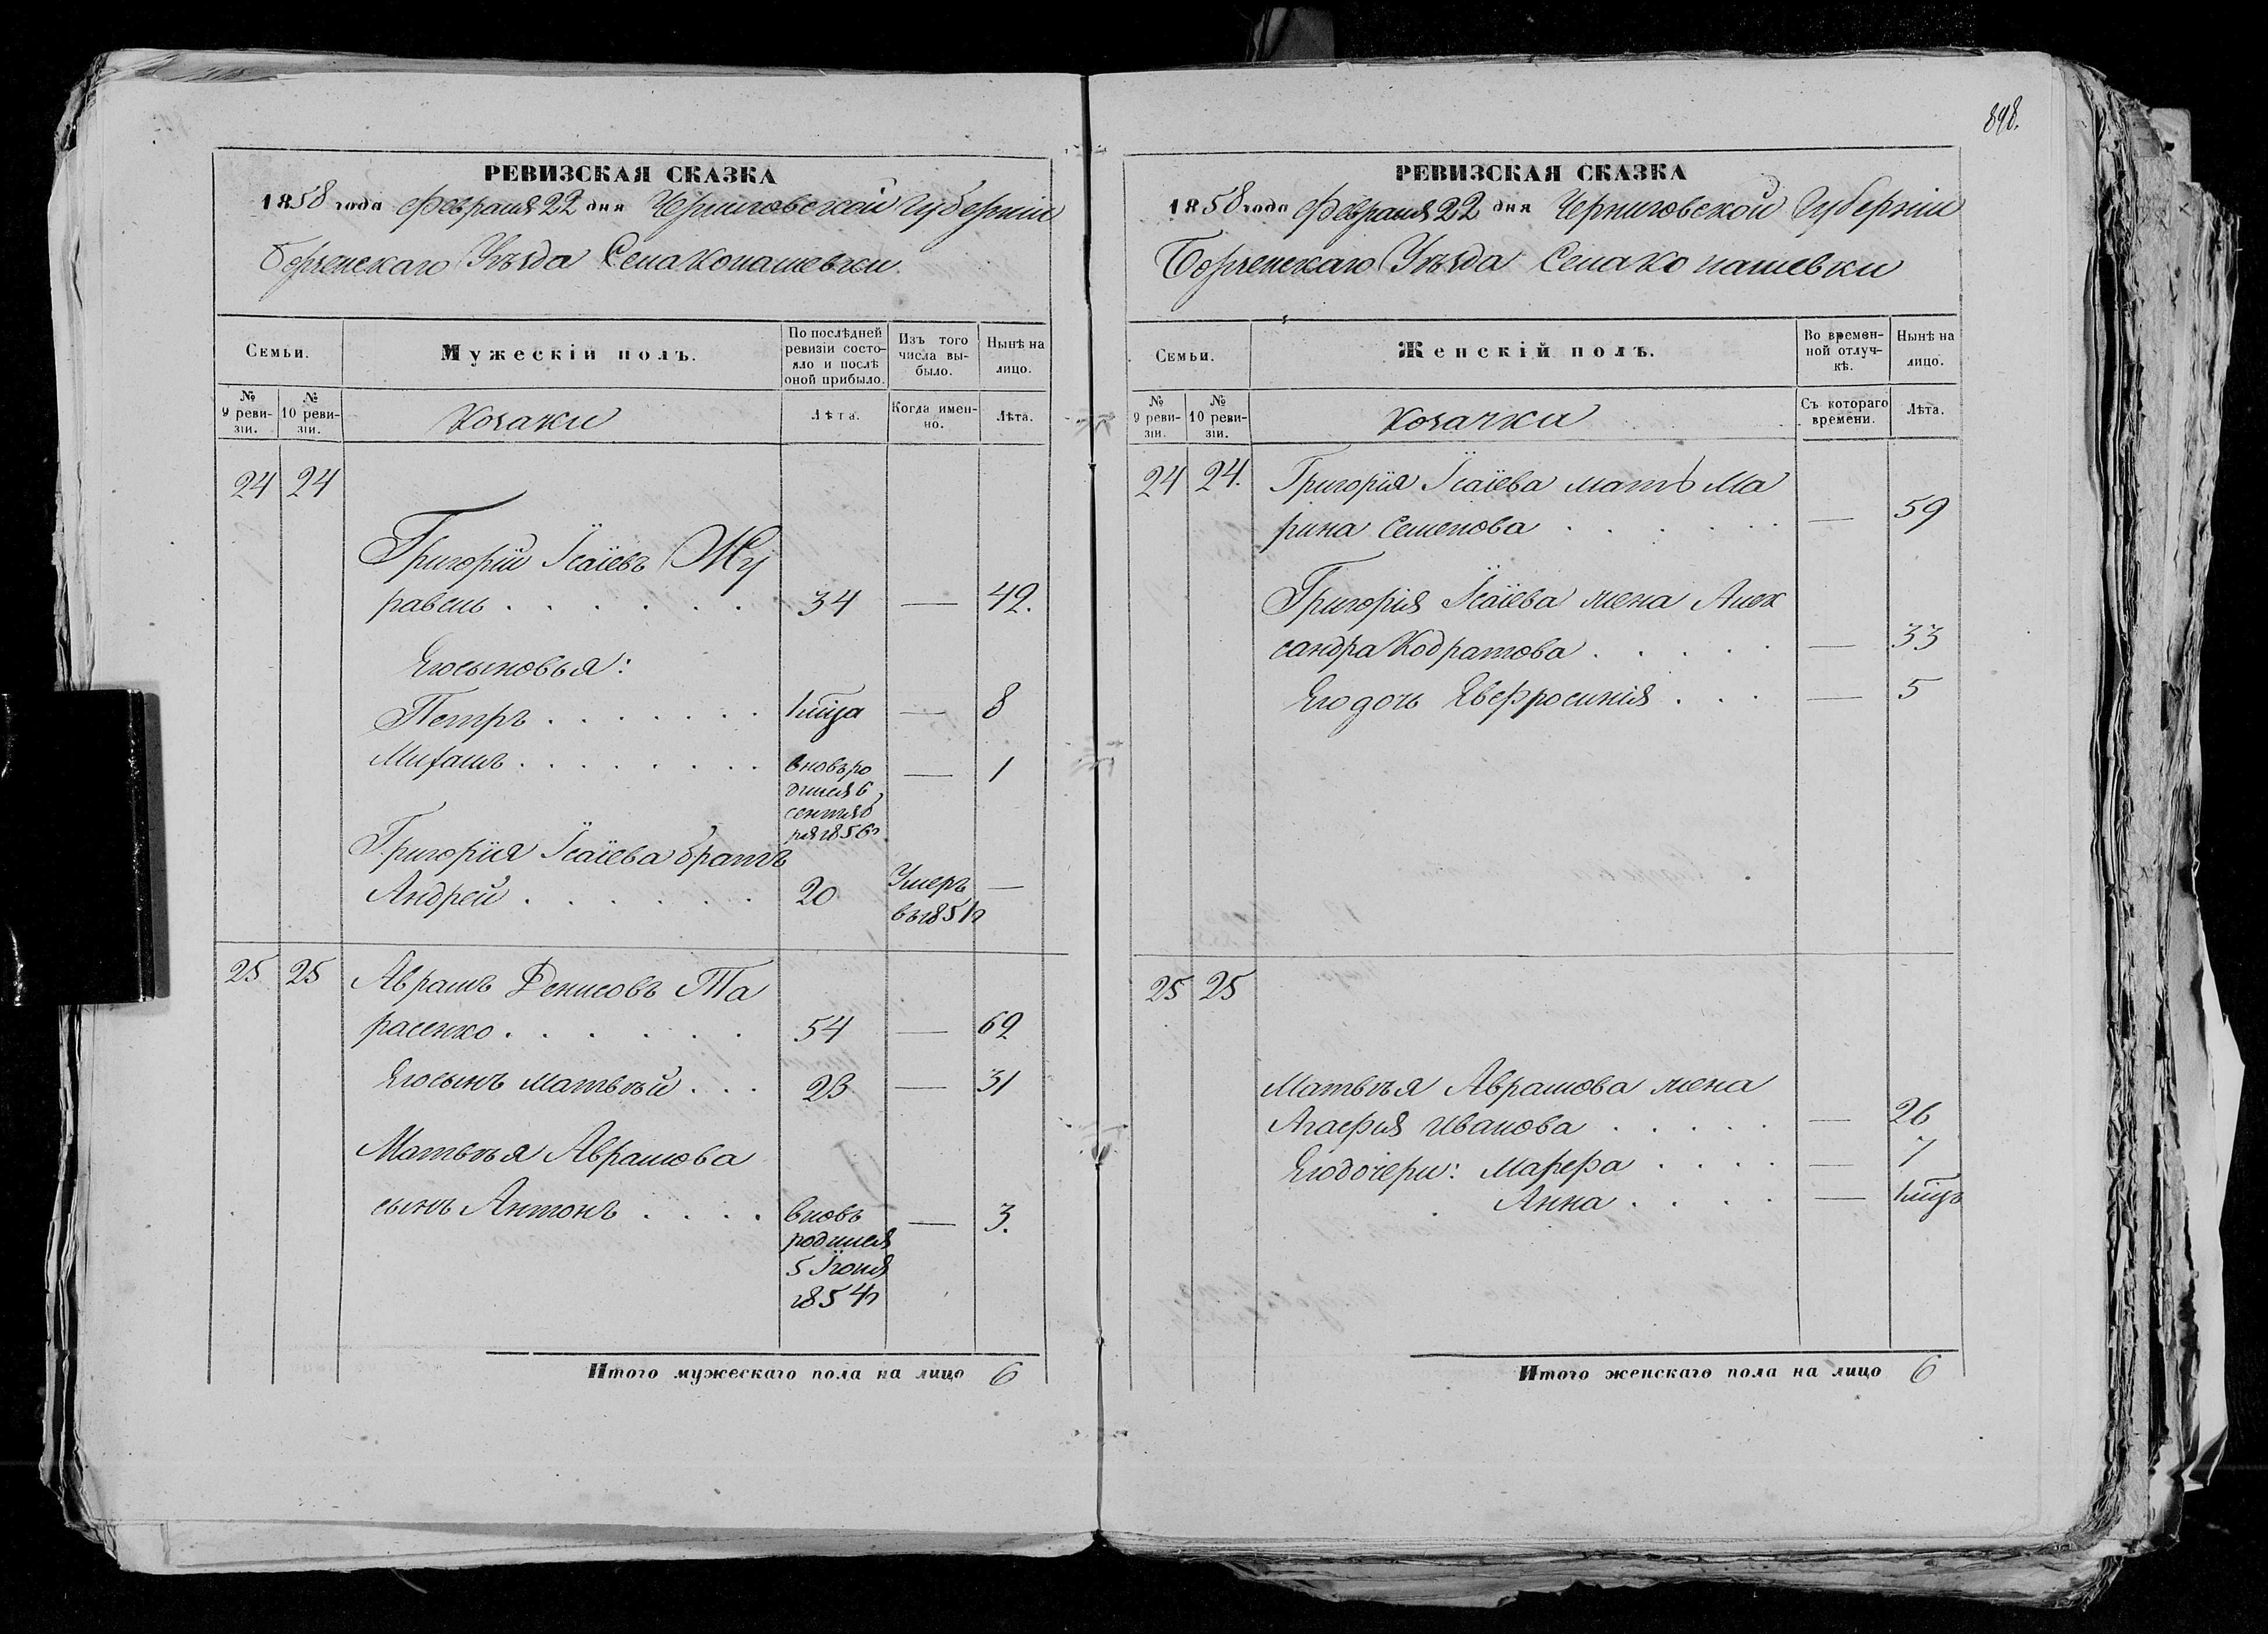 898.
РЕВИЗСКАЯ СКАЗКА
1858 года Февраля 22 дня Черниговской Губерніи
Борзенскаго Уѣзда Села Копашевки
Семьи.
Мужескій полъ.
По послѣдней ревизіи состояло и послѣ оной прибыло.
Изъ того числа выбыло.
Нынѣ на лицо.
№ 9 ревизіи.
№ 10 ревизіи.
Козаки
Лѣта.
Когда именно.
Лѣта.
24 24
Григорій Ісаіевъ Жу
равель . . . . . . 34 — 42.
Его сыновья:
Петръ . . . . . . . 1 мца — 8
Михаилъ . . . . . . . . вновь ро — 1
дился 6
сентяб
ря 1856г
Григорія Ісаіева братъ
Андрей . . . . . . 20 Умеръ —
въ 1851г
25 25 Аврамъ Денисовъ Та
расенко . . . . . . 54 — 62
Его сынъ Матвѣй . . . 23 — 31
Матвѣя Аврамова
сынъ Антонъ . . . . вновь — 3.
родился
5 Іюня
1854г
Итого мужескаго пола на лицо 6
РЕВИЗСКАЯ СКАЗКА
1858 года Февраля 22 дня Черниговской Губерніи
Борзенскаго Уѣзда Села Копашевки
Семьи.
Женскій полъ.
Во временной отлучкѣ.
Нынѣ на лицо.
№ 9 ревизіи.
№ 10 ревизіи.
Козачки
Съ котораго времени.
Лѣта.
24 24. Григорія Ісаіева мать Ма
рина Семенова . . . . . . — 59
Григорія Ісаіева жена Алек
сандра Кодратова . . . . . — 33
Его дочь Евфросинія . . . — 5
25 25
Матвѣя Аврамова жена
Агафія Иванова . . . . . — 26
Его дочери: Марфа . . . . — 7
Анна . . . . — 1 мцъ
Итого женскаго пола на лицо 6